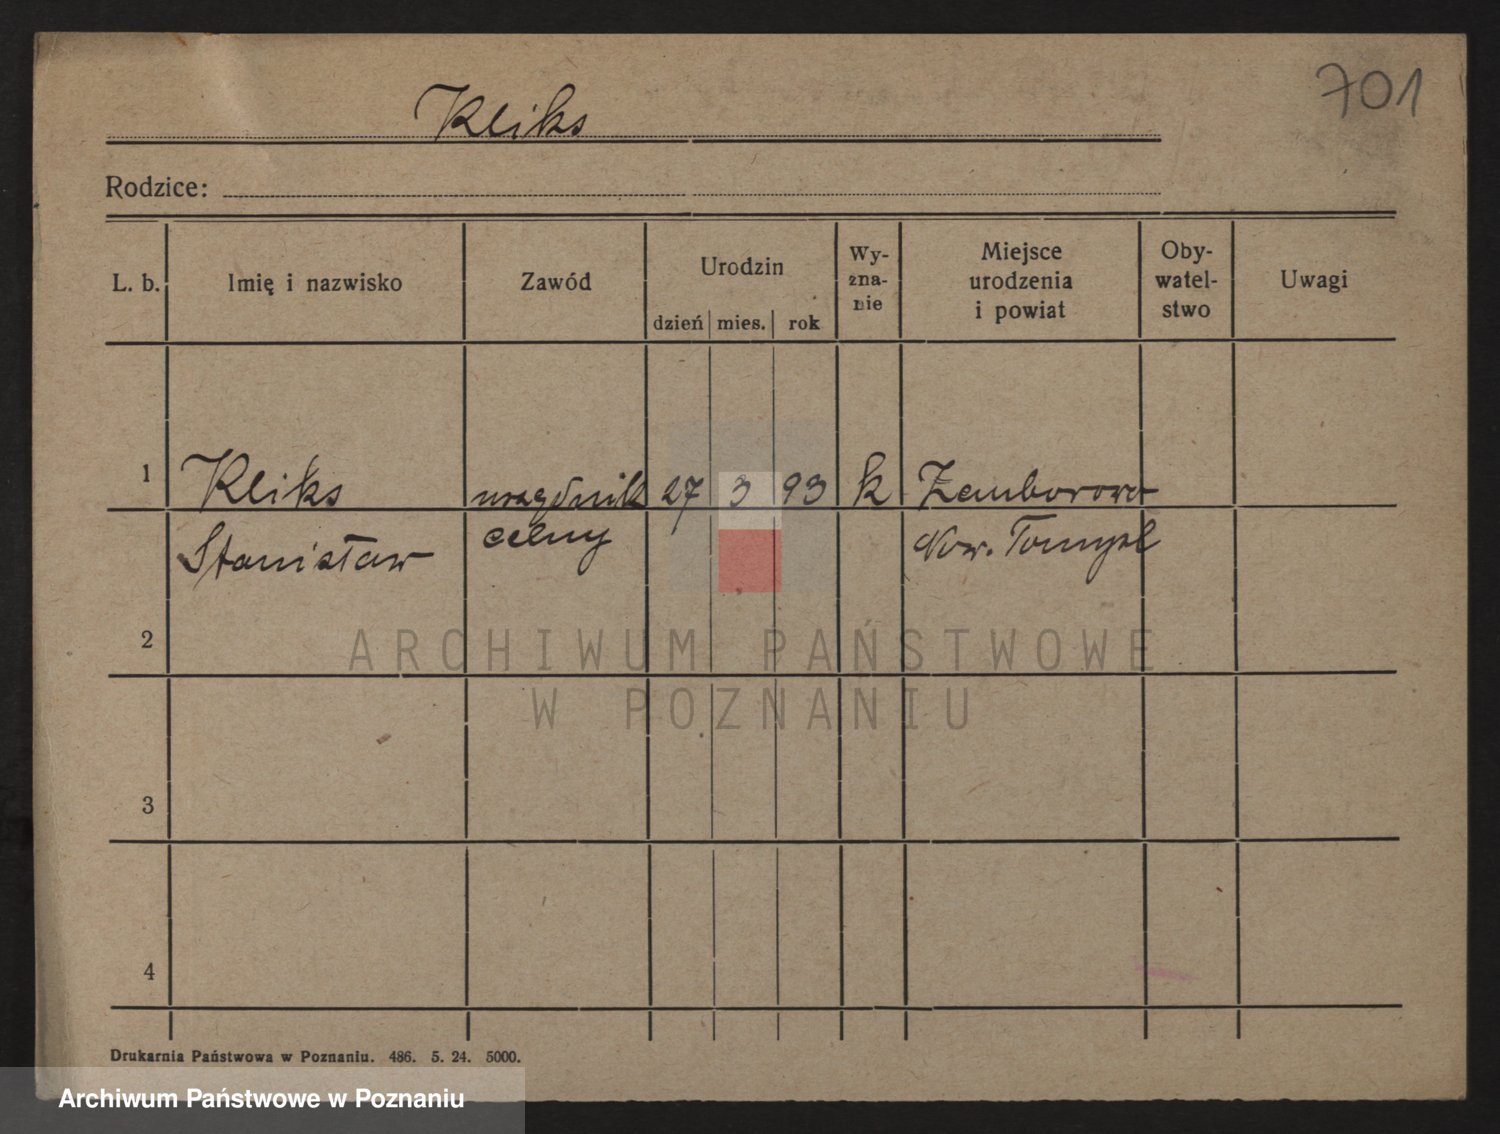 701
Kliks
Rodzice:
L. b. Imię i nazwisko Zawód Urodzin dzień mies. rok Wy-zna-nie Miejsce urodzenia i powiat Oby-watel-stwo Uwagi
1 Kliks urzędnik 27 3 93 k Zemborowo
Stanisław celny Now. Tomyśl
2
ARCHIWUM PAŃSTWOWE
W POZNANIU
3
4
Drukarnia Państwowa w Poznaniu. 486. 5. 24. 5000.
Archiwum Państwowe w Poznaniu